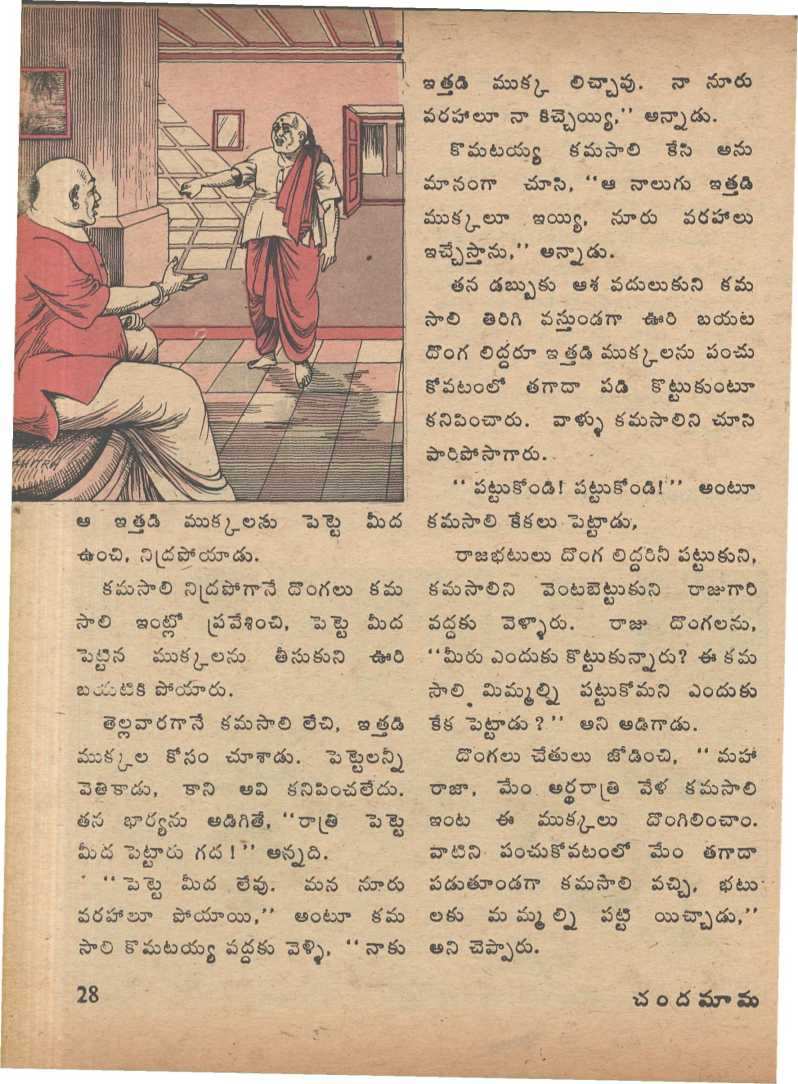 ఆ ఇత్తడి ముక్కలను పెట్టె మీద
ఉంచి, నిద్రపోయాడు.
కమసాలి నిద్రపోగానే దొంగలు కమ
సాలి ఇంట్లో ప్రవేశించి, పెట్టె మీద
పెట్టిన ముక్కలను తీసుకుని ఊరి
బయటికి పోయారు.
తెల్లవారగానే కమసాలి లేచి, ఇత్తడి
ముక్కల కోసం చూశాడు. పెట్టెలన్నీ
వెతికాడు, కాని అవి కనిపించలేదు.
తన భార్యను అడిగితే, "రాత్రి పెట్టె
మీద పెట్టారు గద!" అన్నది.
"పెట్టె మీద లేవు. మన నూరు
వరహాలూ పోయాయి," అంటూ కమ
సాలి కొమటయ్య వద్దకు వెళ్ళి, "నాకు
ఇత్తడి ముక్క లిచ్చావు. నా నూరు
వరహాలూ నా కిచ్చెయ్యి," అన్నాడు.
కొమటయ్య కమసాలి కేసి అను
మానంగా చూసి, "ఆ నాలుగు ఇత్తడి
ముక్కలూ ఇయ్యి, నూరు వరహాలు
ఇచ్చేస్తాను," అన్నాడు.
తన డబ్బుకు ఆశ వదులుకుని కమ
సాలి తిరిగి వస్తుండగా ఊరి బయట
దొంగ లిద్దరూ ఇత్తడి ముక్కలను పంచు
కోవటంలో తగాదా పడి కొట్టుకుంటూ
కనిపించారు. వాళ్ళు కమసాలిని చూసి
పారిపోసాగారు.
"పట్టుకోండి! పట్టుకోండి!" అంటూ
కమసాలి కేకలు పెట్టాడు,
రాజభటులు దొంగ లిద్దరినీ పట్టుకుని,
కమసాలిని వెంటబెట్టుకుని రాజుగారి
వద్దకు వెళ్ళారు. రాజు దొంగలను,
"మీరు ఎందుకు కొట్టుకున్నారు? ఈ కమ
సాలి మిమ్మల్ని పట్టుకోమని ఎందుకు
కేక పెట్టాడు?" అని అడిగాడు.
దొంగలు చేతులు జోడించి, "మహా
రాజా, మేం అర్ధరాత్రి వేళ కమసాలి
ఇంట ఈ ముక్కలు దొంగిలించాం.
వాటిని పంచుకోవటంలో మేం తగాదా
పడుతూండగా కమసాలి వచ్చి, భటు
లకు మమ్మల్ని పట్టి యిచ్చాడు,"
అని చెప్పారు.
28
చందమామ